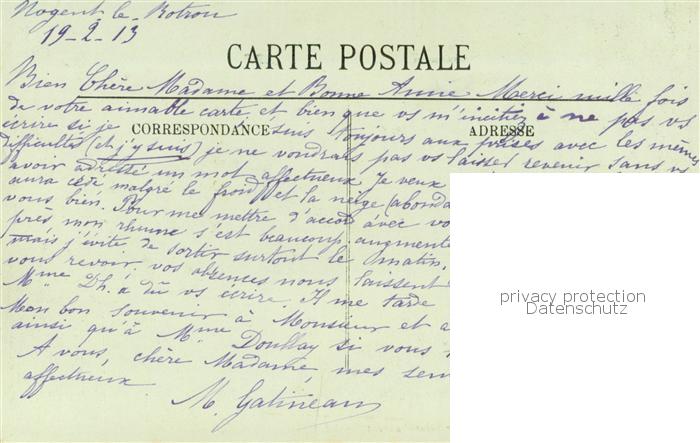 Nogent-le-Rotrou
19-2-13
CARTE POSTALE
Bien Chère Madame et Bonne Amie Merci mille fois
de votre aimable carte, et bien que vs m'incitiez à ne pas vs
écrire si je suis toujours aux prises avec les mêmes
CORRESPONDANCE
ADRESSE
difficultés (et j'y suis) je ne voudrais pas vs laisser revenir sans vs
avoir adressé un mot affectueux. Je veux
aura cédé malgré le froid et la neige
vous bien. Pour me mettre d'accord avec
près, mon rhume s'est beaucoup augmenté
mais j'évite de sortir surtout le matin,
vous revoir, vos absences nous laissent
Mme Dh. a dû vs écrire. Il me tarde
Mon bon souvenir à Monsieur et
ainsi qu'à Mme Doullay si vous
A vous, chère Madame, mes
affectueux
M. Gatineau
privacy protection
Datenschutz